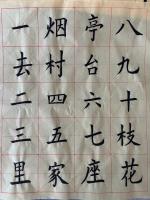 一去二三里
烟村四五家
亭台六七座
八九十枝花